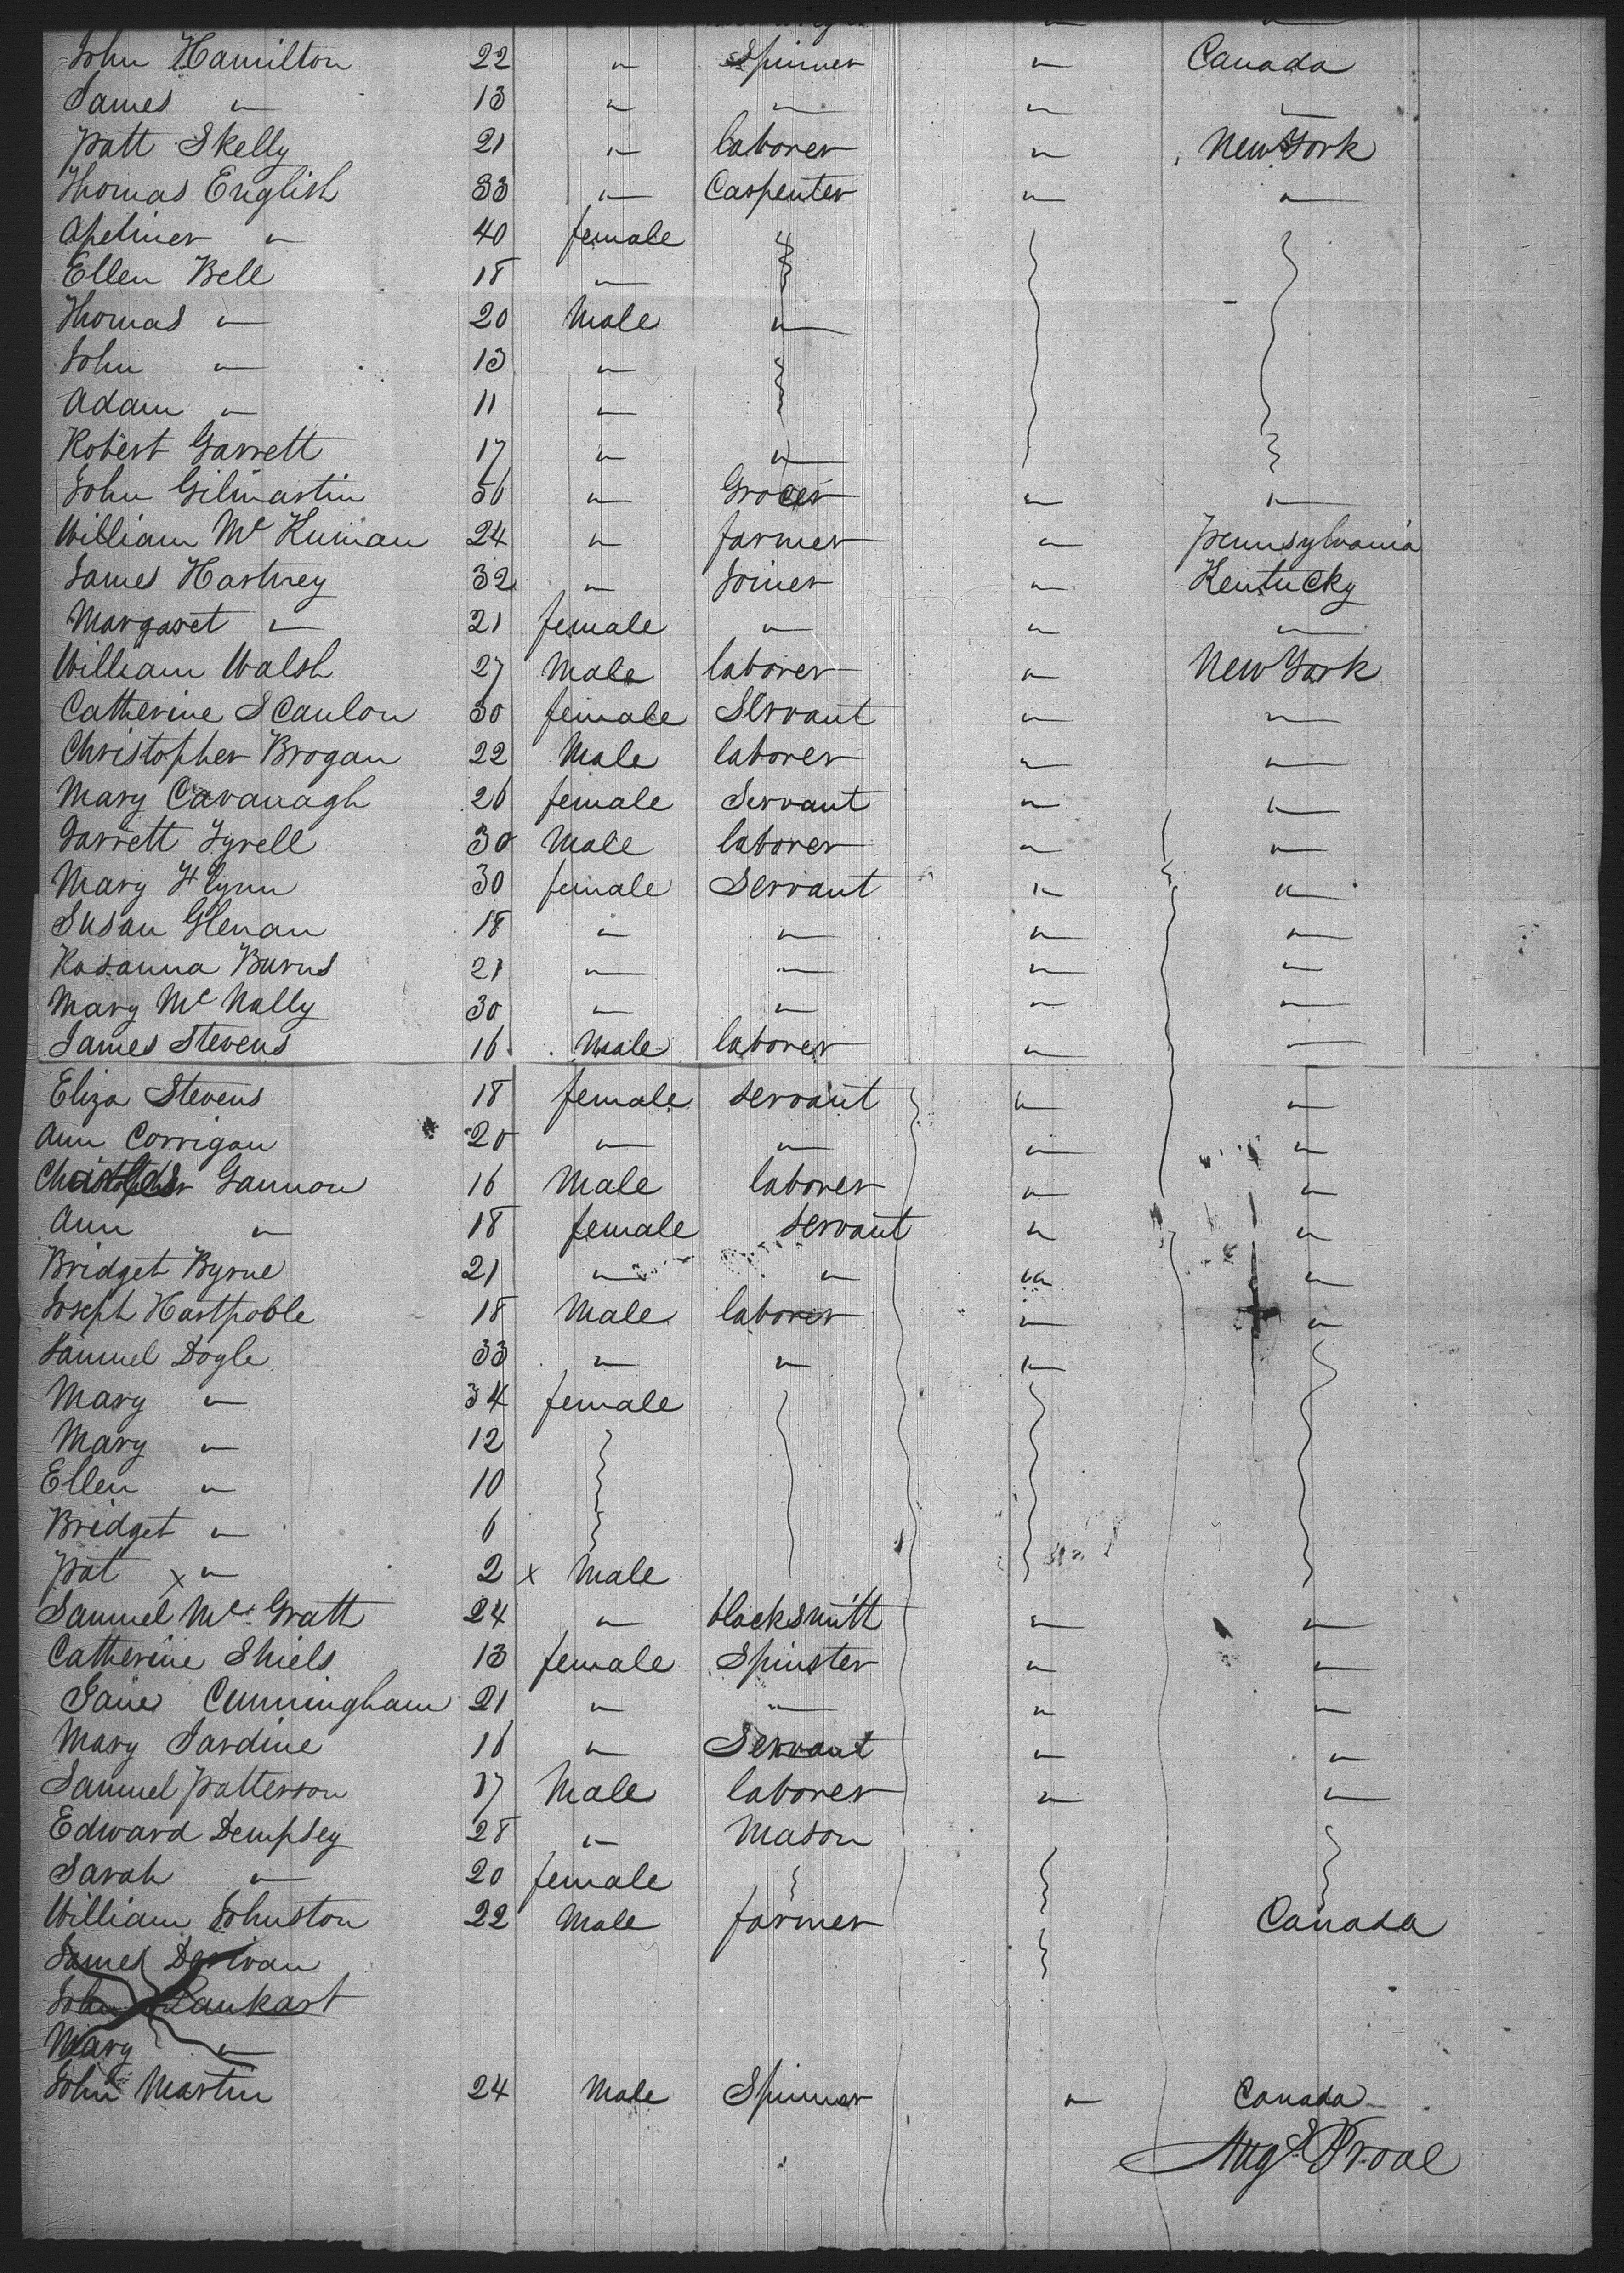 John Hamilton 22 " Spinner " Canada
James " 13 " " " "
Patt Skelly 21 " laborer " New York
Thomas English 33 " Carpenter " "
" 40 female "
Ellen Bell 18 "
Thomas " 20 Male "
John " 13 "
Adam " 11 "
Robert Garrett 17 " "
John Gilmartin 50 " Grocer " "
William Mc 24 " farmer " Pennsylvania
James Hartney 32 " Joiner " Kentucky
Margaret " 21 female " " "
William Walsh 27 Male laborer " New York
Catherine Scanlon 30 female Servant " "
Christopher Brogan 22 Male laborer " "
Mary Cavanagh 26 female Servant " "
Garrett Tyrell 30 Male laborer " "
Mary Flynn 30 female Servant " "
Susan Glenan 18 " " " "
Rosanna Burns 21 " " " "
Mary Mc Nally 30 " " " "
James Stevens 16 Male laborer " "
Eliza Stevens 18 female servant " "
Ann Corrigan 20 " " " "
Christopher Gannon 16 Male laborer " "
Ann " 18 female servant " "
Bridget Byrne 21 " " " "
Joseph Hartpoble 18 Male laborer " "
Samuel Dogle 33 " " "
Mary " 34 female
Mary " 12
Ellen " 10
Bridget " 6
Pat x " 2 x Male
Samuel Mc Gratt 24 " blacksmitt " "
Catherine Shiels 13 female Spinster " "
Jane Cunningham 21 " " " "
Mary Jardine 16 " Servant " "
Samuel Patterson 17 Male laborer " "
Edward Dempsey 28 " Mason
Sarah " 20 female
William Johnston 22 Male farmer Canada
James
John Lankart
Mary "
John Martin 24 Male Spinner " Canada
Augs Proal